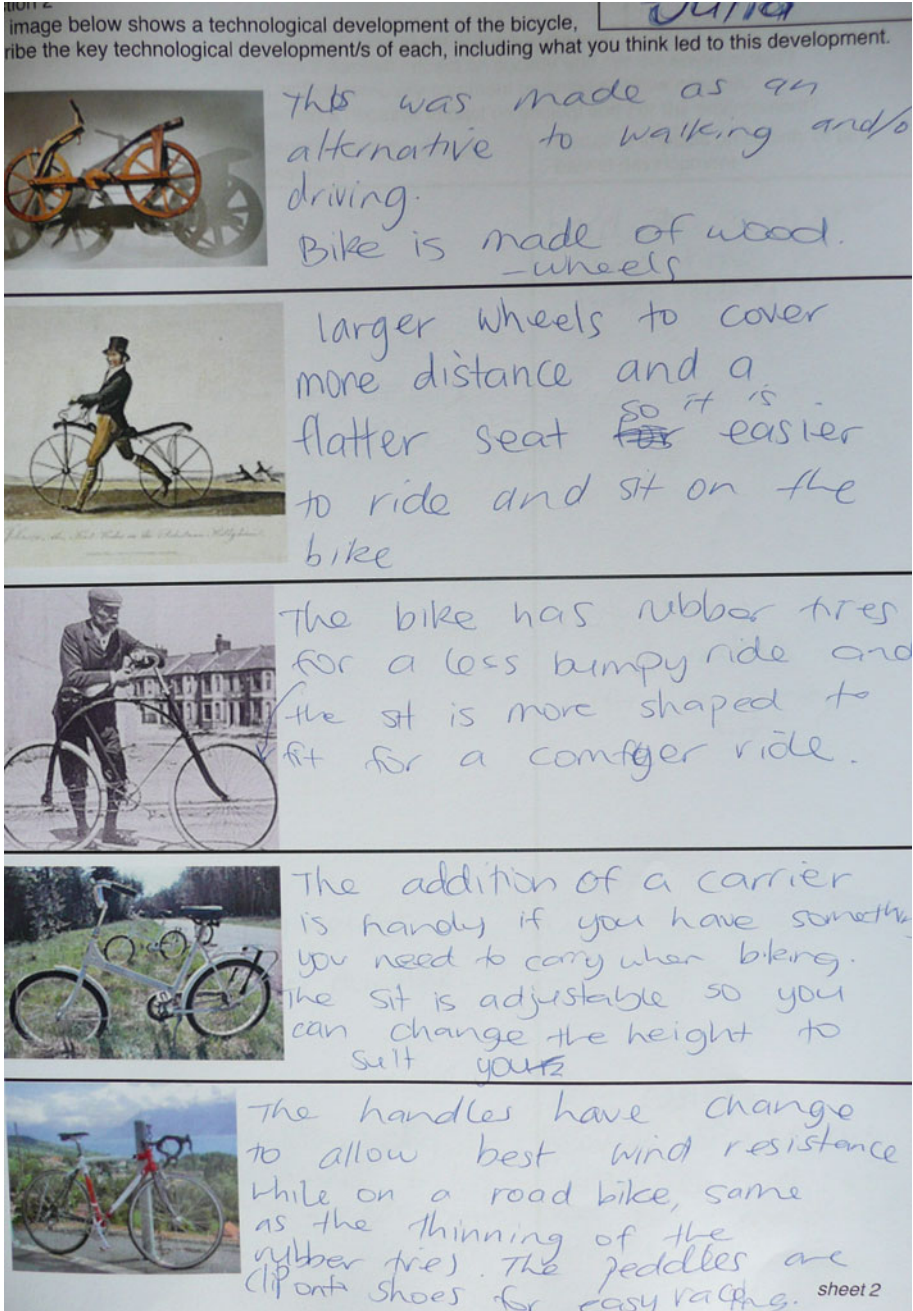 image below shows a technological development of the bicycle,
ribe the key technological development/s of each, including what you think led to this development.
This was made as an
alternative to walking and/o
driving.
Bike is made of wood.
- wheels
larger wheels to cover
more distance and a
flatter seat so it is easier
to ride and sit on the
bike
The bike has rubber tires
for a less bumpy ride and
the sit is more shaped to
fit for a ride.
The addition of a carrier
is handy if you have somethi
you need to carry when biking.
The sit is adjustable so you
can change the height to
suit you
The handles have change
to allow best wind resistence
while on a road bike, same
as the thinning of the
rubber tries. The peddles are
clip onto shoes for easy racing.
sheet 2